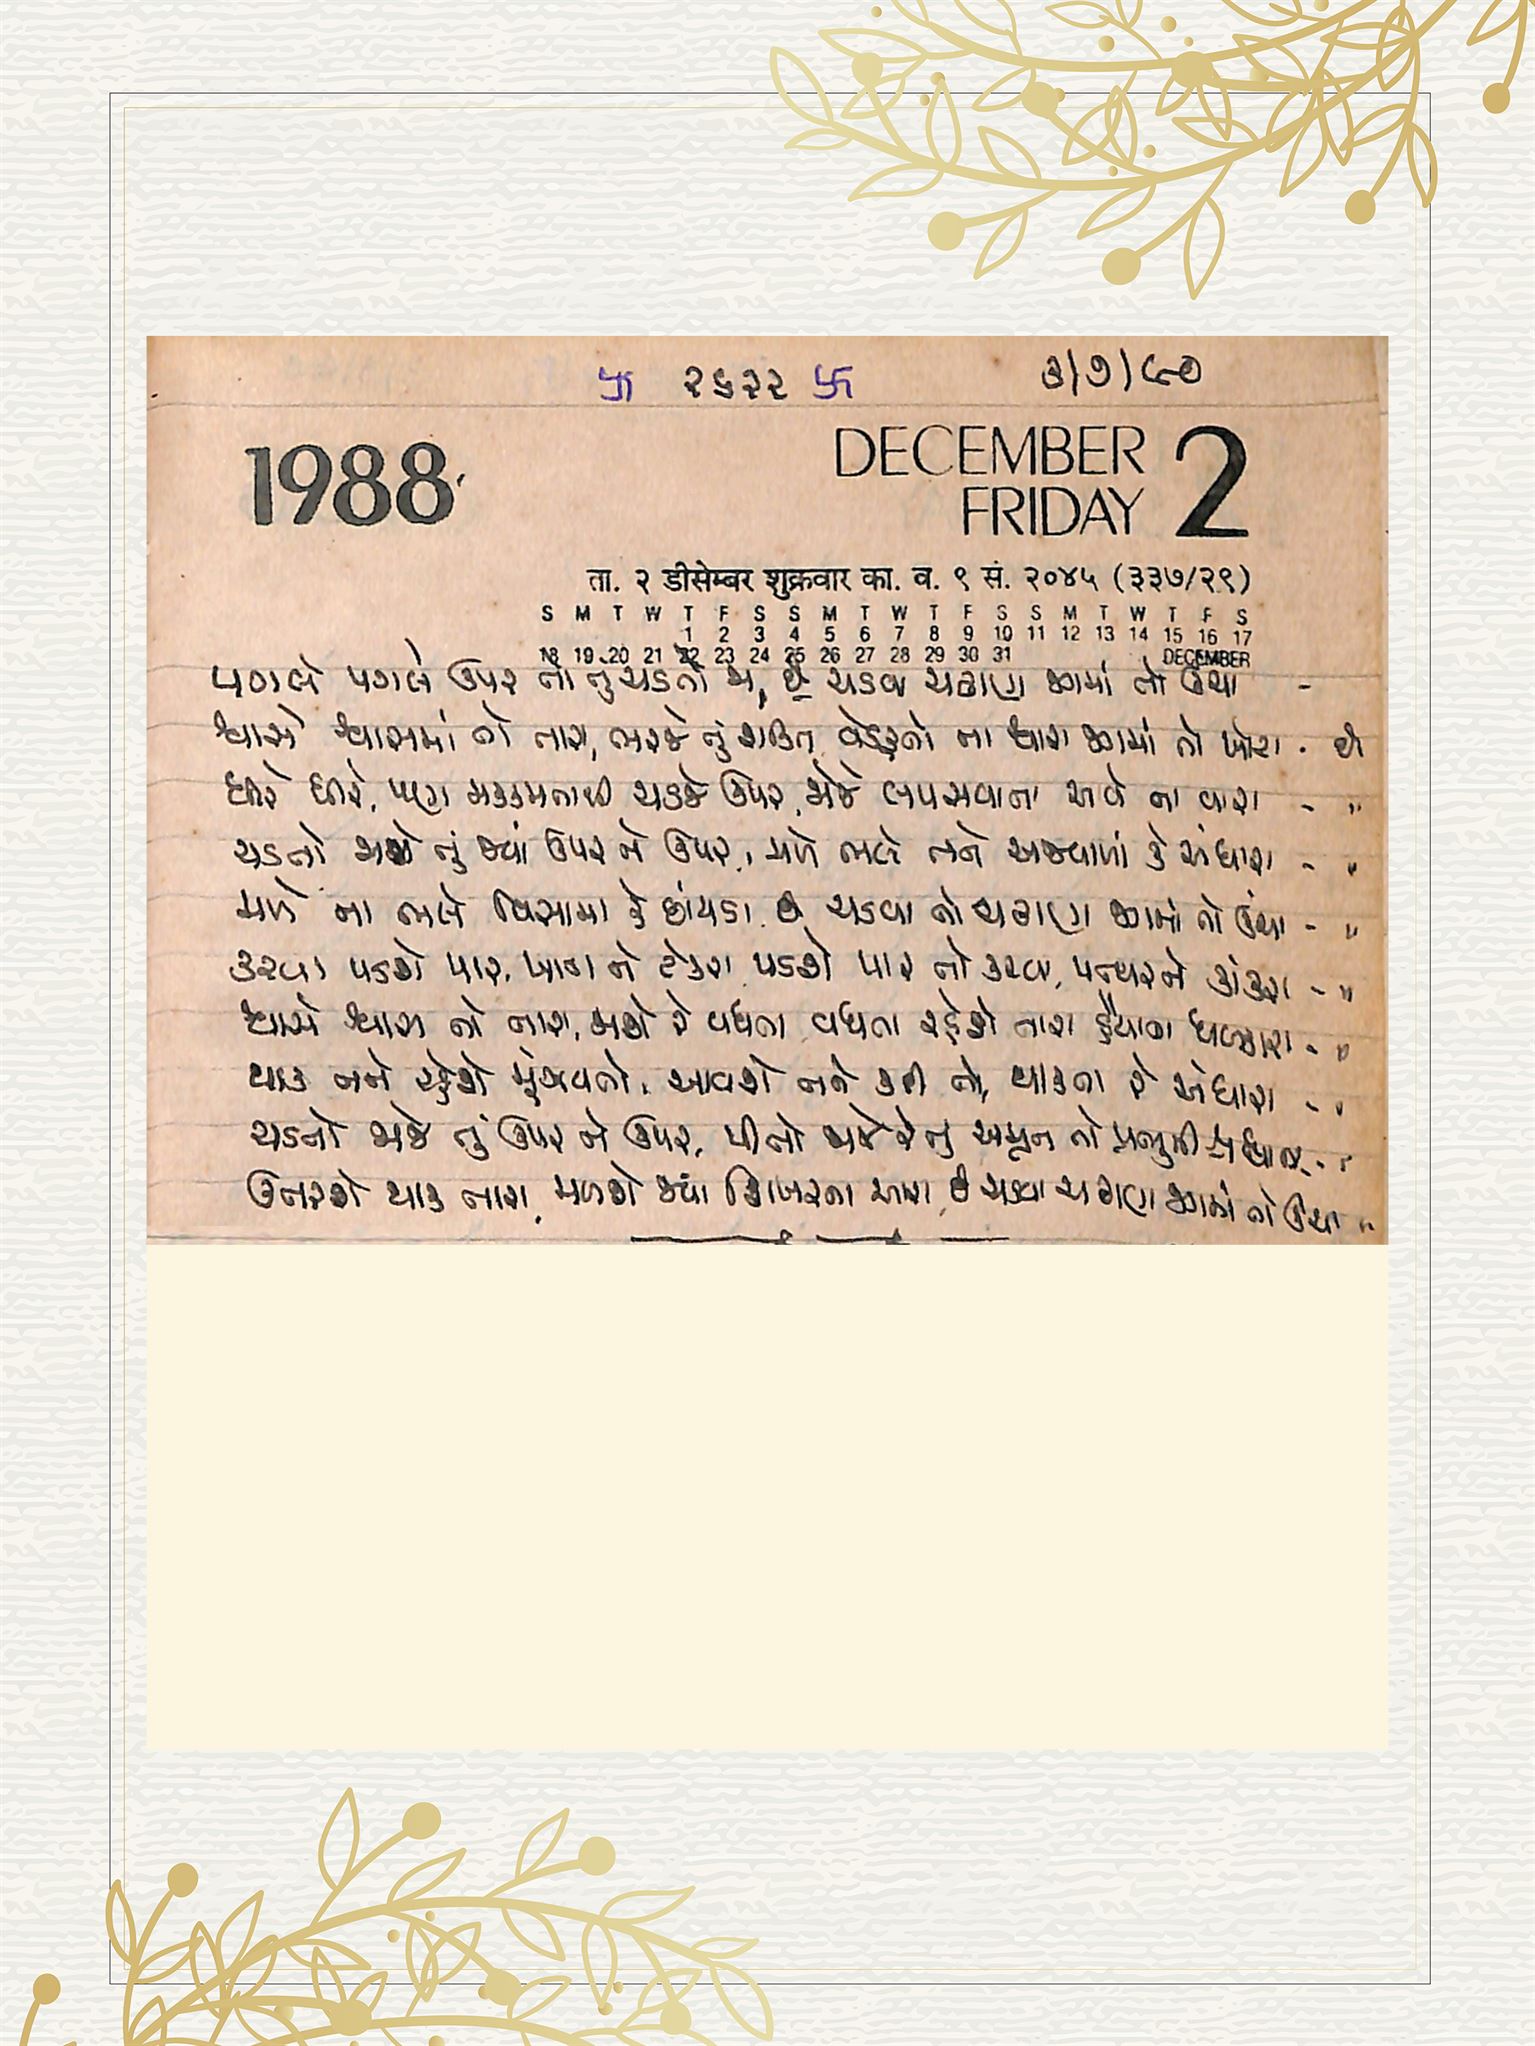 卐 ૨૬૨૨ 卐 ૩/૭/૯૦
1988
DECEMBER 2
FRIDAY
ता. २ डीसेम्बर शुक्रवार का. व. ९ सं. २०४५ (३३७/२९)
S M T W T F S S M T W T F S S M T W T F S
1 2 3 4 5 6 7 8 9 10 11 12 13 14 15 16 17
18 19 20 21 22 23 24 25 26 27 28 29 30 31 DECEMBER
પગલે પગલે ઉપર તો તું ચડતો જા, છે ચડવા ચઢાણ જ્યાં તો ઊંચા -
શ્વાસે શ્વાસમાં તો તારા, ભરજે તું શક્તિ વેડફતો ના શ્વાસ જ્યાં તો ખોટા - છે
ધીરે ધીરે, પણ મક્કમતાથી ચડજે ઉપર, જોજે લપસવાના આવે ના વારા - "
ચડતો જાજે તું જ્યાં ઉપર ને ઉપર, મળે ભલે તને અજવાળાં કે અંધારા - "
મળે ના ભલે વિસામા કે છાંયડા છે ચડવા તો ચઢાણ જ્યાં તો ઊંચા - "
કરવા પડશે પાર, ખાડા ને ટેકરા પડશે પાર તો કરવા, પથ્થર ને કાંકરા - "
શ્વાસે શ્વાસ તો તારા, જાશે રે વધતા વધતા રહેશે તારા હૈયાના ધબકારા - "
થાક તને રહેશે મૂંઝવતો, આવશે તને કદી તો, થાકના રે અંધારા - "
ચડતો જાજે તું ઉપર ને ઉપર, પીતો જાજે રે તું અમૃત તો પ્રભુની - "
ઉતરશે થાક તારા, મળશે જ્યાં શિખરના આરા છે ચડવા ચઢાણ જ્યાં તો ઊંચા "